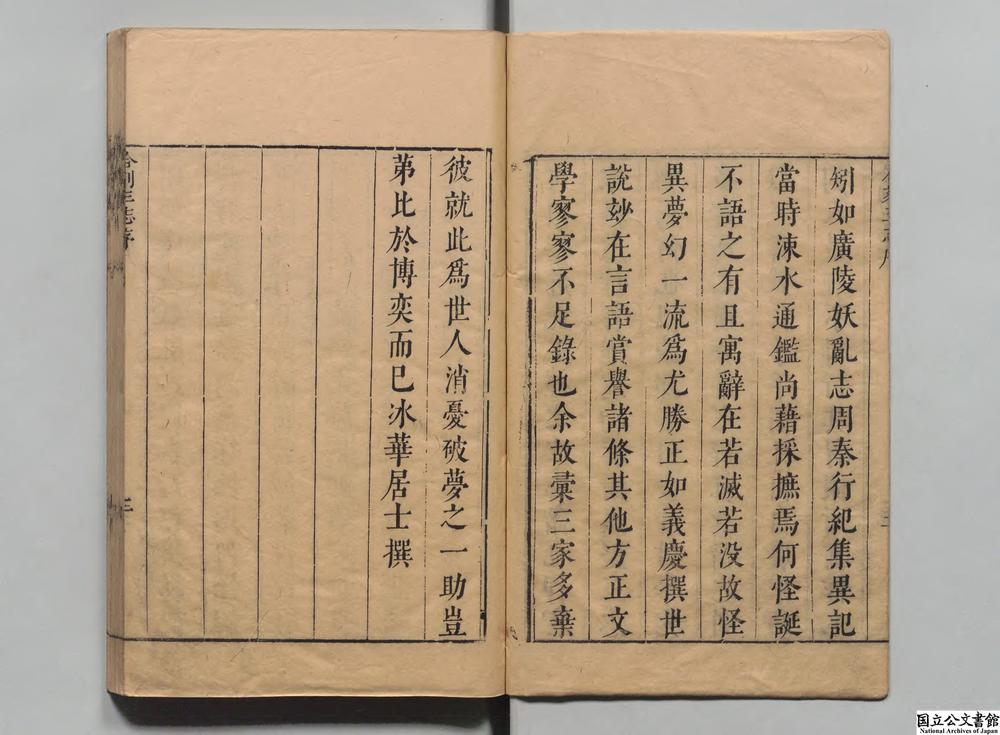 矧如廣陵妖亂志周秦行紀集異記
當時涑水通鑑尚藉採摭焉何怪誕
不語之有且寓辭在若滅若没故怪
異夢幻一流爲尤勝正如義慶撰世
說玅在言語賞譽諸條其他方正文
學寥寥不足錄也余故彚三家多棄
彼就此爲世人消憂破夢之一助豈
第比於博奕而已冰華居士撰
国立公文書館
National Archives of Japan